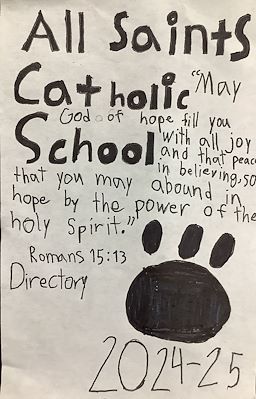 All Saints
Catholic "May
God of hope fill you
School with all joy
and that peace
in believing, so
that you may abound in
hope by the power of the
holy Spirit."
Romans 15:13
Directory
2024-25